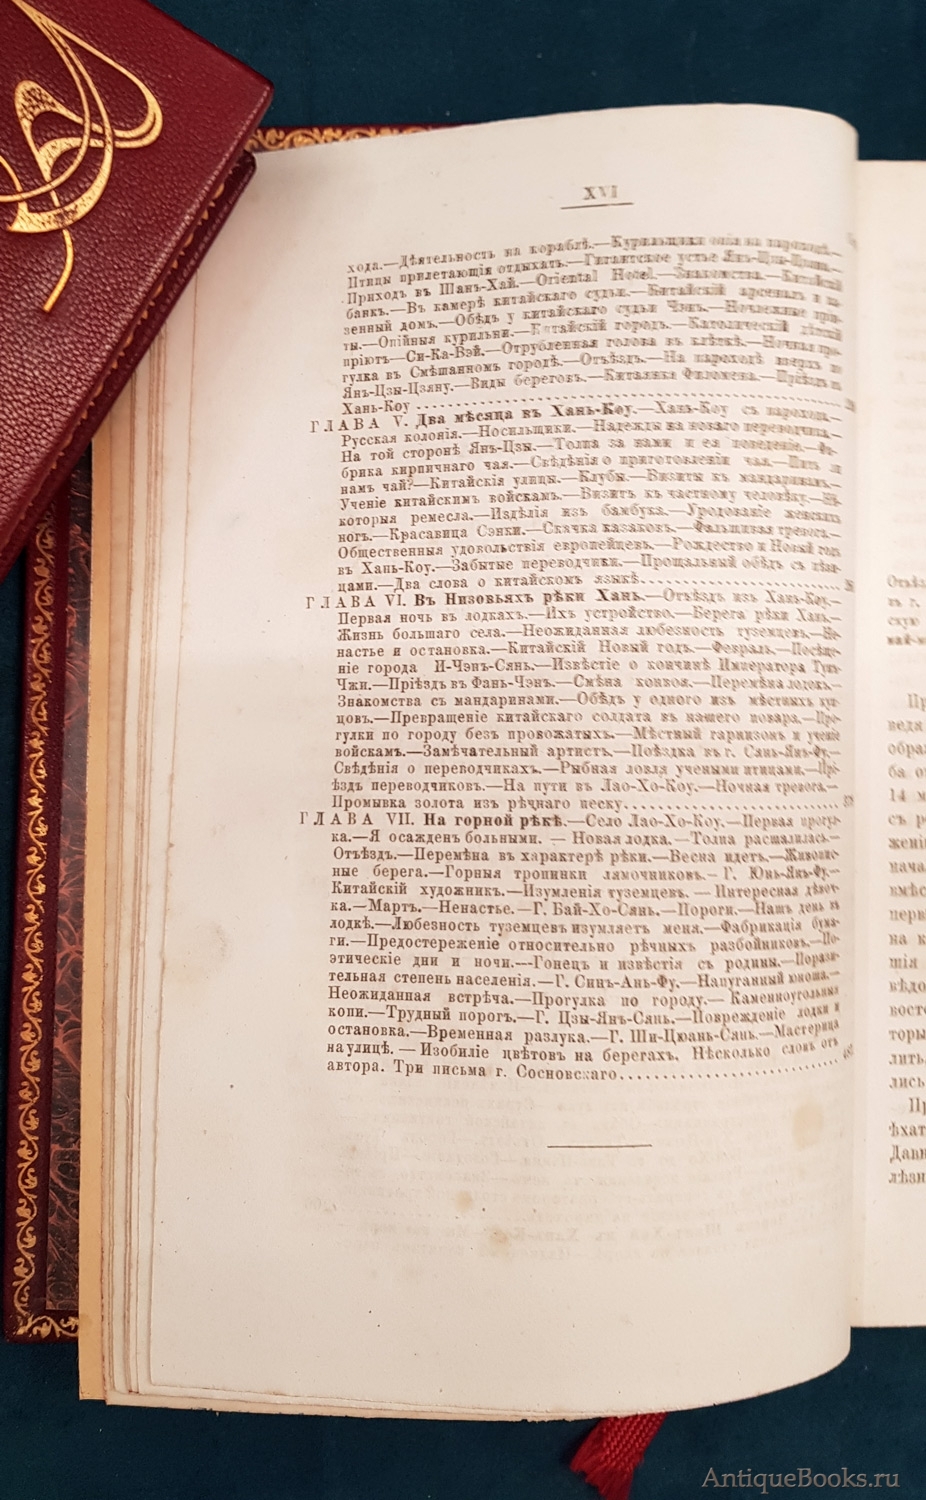 XVI
хода.—Дѣятельность на кораблѣ.—Курильщики опія на пароходѣ.—
Птицы прилетающія отдыхать.—Гигантское устье Янъ-Цзы-Цзяна.—
Приходъ въ Шанъ-Хай.—Oriental Hotel.—Знакомства.—Китайскій
банкъ.—Въ камерѣ китайскаго судьи.—Китайскій арсеналъ и ка-
зенный домъ.—Обѣдъ у китайскаго судьи Чэнъ.—Ночлежные прію-
ты.—Опійныя курильни.—Китайскій городъ.—Католическій дѣтскій
пріютъ—Си-Ка-Вэй.—Отрубленная голова въ клѣткѣ.—Ночная про-
гулка въ Смѣшанномъ городѣ.—Отъѣздъ.—На пароходѣ вверхъ по
Янъ-Цзы-Цзяну.—Виды береговъ.—Китаянка Филомена.—Пріѣздъ въ
Ханъ-Коу
ГЛАВА V. Два мѣсяца въ Ханъ-Коу.—Ханъ-Коу съ парохода.—
Русская колонія.—Носильщики.—Надежды на новаго переводчика.—
На той сторонѣ Янъ-Цзы.—Толпа за нами и ея поведеніе.—Фа-
брика кирпичнаго чая.—Свѣдѣнія о приготовленіи чая.—Пить ли
намъ чай?—Китайскія улицы.—Клубы.—Визиты къ мандаринамъ.—
Ученіе китайскимъ войскамъ.—Визитъ къ частному человѣку.—Нѣ-
которыя ремесла.—Издѣлія изъ бамбука.—Уродованіе женскихъ
ногъ.—Красавица Сэнки.—Скачка казаковъ.—Фальшивая тревога.—
Общественныя удовольствія европейцевъ.—Рождество и Новый годъ
въ Ханъ-Коу.—Забытые переводчики.—Прощальный обѣдъ съ нѣм-
цами.—Два слова о китайскомъ языкѣ
ГЛАВА VI. Въ Низовьяхъ рѣки Ханъ.—Отъѣздъ изъ Ханъ-Коу.—
Первая ночь въ лодкахъ.—Ихъ устройство.—Берега рѣки Ханъ.—
Жизнь большаго села.—Неожиданная любезность туземцевъ.—Не-
настье и остановка.—Китайскій Новый годъ.—Февраль.—Посѣще-
ніе города И-Чэнъ-Сянь.—Извѣстіе о кончинѣ Императора Тунъ-
Чжи.—Пріѣздъ въ Фань-Чэнъ.—Смѣна конвоя.—Перемѣна лодокъ.—
Знакомства съ мандаринами.—Обѣдъ у одного изъ мѣстныхъ куп-
цовъ.—Превращеніе китайскаго солдата въ нашего повара.—Про-
гулки по городу безъ провожатыхъ.—Мѣстный гарнизонъ и ученіе
войскамъ.—Замѣчательный артистъ.—Поѣздка въ г. Сянъ-Янъ-Фу.—
Свѣдѣнія о переводчикахъ.—Рыбная ловля учеными птицами.—Прі-
ѣздъ переводчиковъ.—На пути въ Лао-Хо-Коу.—Ночная тревога.—
Промывка золота изъ рѣчнаго песку
ГЛАВА VII. На горной рѣкѣ.—Село Лао-Хо-Коу.—Первая прогул-
ка.—Я осажденъ больными. — Новая лодка.—Толпа расшалилась.—
Отъѣздъ.—Перемѣна въ характерѣ рѣки.—Весна идетъ.—Живопис-
ные берега.—Горныя тропинки лямочниковъ.—Г. Юнь-Янъ-Фу.—
Китайскій художникъ.—Изумленія туземцевъ.—Интересная дѣвоч-
ка.—Мартъ.—Ненастье.—Г. Бай-Хо-Сянь.—Пороги.—Нашъ день въ
лодкѣ.—Любезность туземцевъ изумляетъ меня.—Фабрикація бума-
ги.—Предостереженіе относительно рѣчныхъ разбойниковъ.—По-
этическіе дни и ночи.—Гонецъ и извѣстія съ родины.—Порази-
тельная степень населенія.—Г. Синъ-Анъ-Фу.—Напуганный юноша.—
Неожиданная встрѣча.—Прогулка по городу.—Каменноугольныя
копи.—Трудный порогъ.—Г. Цзы-Янъ-Сянь.—Поврежденіе лодки и
остановка.—Временная разлука.—Г. Ши-Цюань-Сянь.—Мастерица
на улицѣ.—Изобиліе цвѣтовъ на берегахъ. Нѣсколько словъ отъ
автора. Три письма г. Сосновскаго
AntiqueBooks.ru